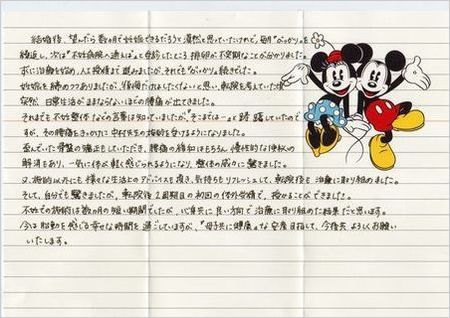 結婚後、望んだら数か月で妊娠できるだろうと漠然と思っていたけれど、毎月“がっかり”を
繰返し、次は“不妊病院へ通えば”と受診したところ排卵が不定期なことが分かりました。
すぐに治療を始め、人工授精まで進みましたが、それでも“がっかり”続きでした。
妊娠を諦めかけてましたが、後悔だけはしたくないと思い、転院を考えていた頃
突然 日常生活がままならないほどの腰痛が出てきました。
それまでも不妊整体などの言葉は知っていましたが、“そこまでは…”と躊躇していたので
すが、その腰痛をきっかけに中村先生の施術を受けるようになりました。
歪んでいた骨盤の矯正をしていただき、腰痛の緩和はもちろん、慢性的な便秘の
解消もあり、一気に体が軽く感じられるようになり、整体の威力に驚きました。
又、施術以外にも様々な生活上のアドバイスも頂き、気持ちもリフレッシュして、転院後も治療に取り組めました。
そして、自分でも驚きましたが、転院後2周期目の初回の体外受精で、授かることができました。
不妊での施術は数か月の短い期間でしたが、心身共に良い方向で治療に取り組めた結果だと思います。
今は胎動を感じる幸せな時間を過ごしていますが、“母子共に健康”な安産目指して、今後共よろしくお願い
いたします。